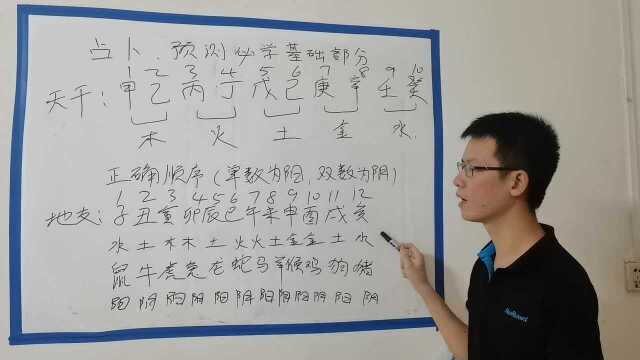 占卜、预测必学基础部分
1 2 3 4 5 6 7 8 9 10
天干: 甲乙丙丁戊己庚辛壬癸
木 火 土 金 水
正确顺序(单数为阳,双数为阴)
1 2 3 4 5 6 7 8 9 10 11 12
地支: 子丑寅卯辰巳午未申酉戌亥
水土木木土火火土金金土水
鼠牛虎兔龙蛇马羊猴鸡狗猪
阳阴阳阴阳阴阳阴阳阴阳阴